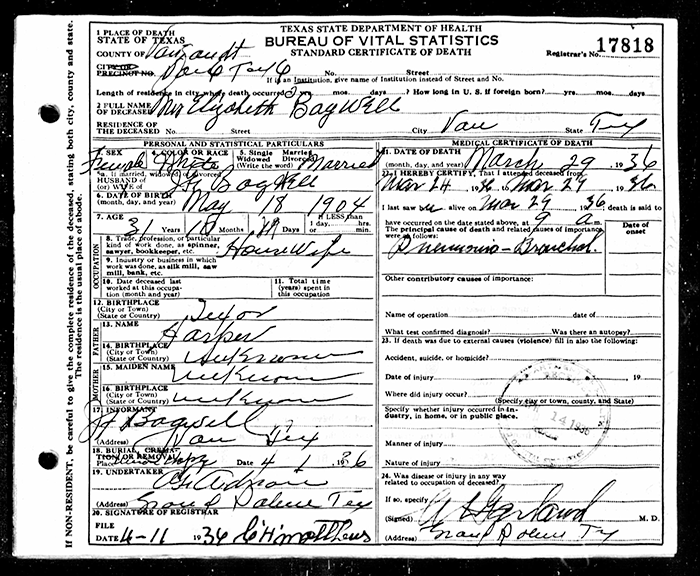 TEXAS STATE DEPARTMENT OF HEALTH
BUREAU OF VITAL STATISTICS
STANDARD CERTIFICATE OF DEATH
Registrar's No. 17818
If NON-RESIDENT, be careful to give the complete residence of the deceased, stating both city, county and state. The residence is the usual place of abode.
1 PLACE OF DEATH
STATE OF TEXAS
COUNTY OF Vanzandt
CITY OR
PRECINCT NO. Van Tex No. Street
If in an Institution, give name of Institution instead of Street and No.
Length of residence in city where death occurred yrs. mos. days. How long in U. S. if foreign born? yrs. mos. days
2 FULL NAME OF DECEASED Mrs Elizabeth Bagwell
RESIDENCE OF THE DECEASED No. Street City Van State Tex
PERSONAL AND STATISTICAL PARTICULARS
3. SEX Female 4. COLOR OR RACE White 5. Single Married Widowed Divorced (Write the word) Married
a. If married, widowed, or divorced
HUSBAND OF (or) WIFE OF Bagwell
6. DATE OF BIRTH (month, day, and year) May 18 1904
7. AGE 31 Years 10 Months Days If LESS than 1 day, hrs. min.
OCCUPATION
8. Trade, profession, or particular kind of work done, as spinner, sawyer, bookkeeper, etc. HouseWife
9. Industry or business in which work was done, as silk mill, saw mill, bank, etc.
10. Date deceased last worked at this occupation (month and year)
11. Total time (years) spent in this occupation
12. BIRTHPLACE (City or Town) (State or Country) Texas
FATHER
13. NAME Harper
14. BIRTHPLACE (City or Town) (State or Country) Unknown
MOTHER
15. MAIDEN NAME Unknown
16. BIRTHPLACE (City or Town) (State or Country) Unknown
17. INFORMANT Bagwell
(Address) Van Tex
18. BURIAL, CREMATION OR REMOVAL
Place Date 4 1 1936
19. UNDERTAKER
Grand Saline Tex
20. SIGNATURE OF REGISTRAR
FILE DATE 4-11 1936 Matthews
MEDICAL CERTIFICATE OF DEATH
21. DATE OF DEATH (month, day, and year) March 29 1936
22. I HEREBY CERTIFY, That I attended deceased from
Mar 24 1936 to Mar 29 1936
I last saw alive on Mar 29 1936 death is said to
have occurred on the date stated above, at 9 a m.
The principal cause of death and related causes of importance were as follows: Date of onset
Pneumonia-Bronchial
Other contributory causes of importance:
Name of operation date of
What test confirmed diagnosis? Was there an autopsy?
23. If death was due to external causes (violence) fill in also the following:
Accident, suicide, or homicide?
Date of injury 19
Where did injury occur?
(Specify city or town, county, and State)
Specify whether injury occurred in industry, in home, or in public place.
Manner of injury
Nature of injury
24. Was disease or injury in any way related to occupation of deceased?
If so, specify
(Signed) Garland M. D.
(Address) Grand Saline Tex